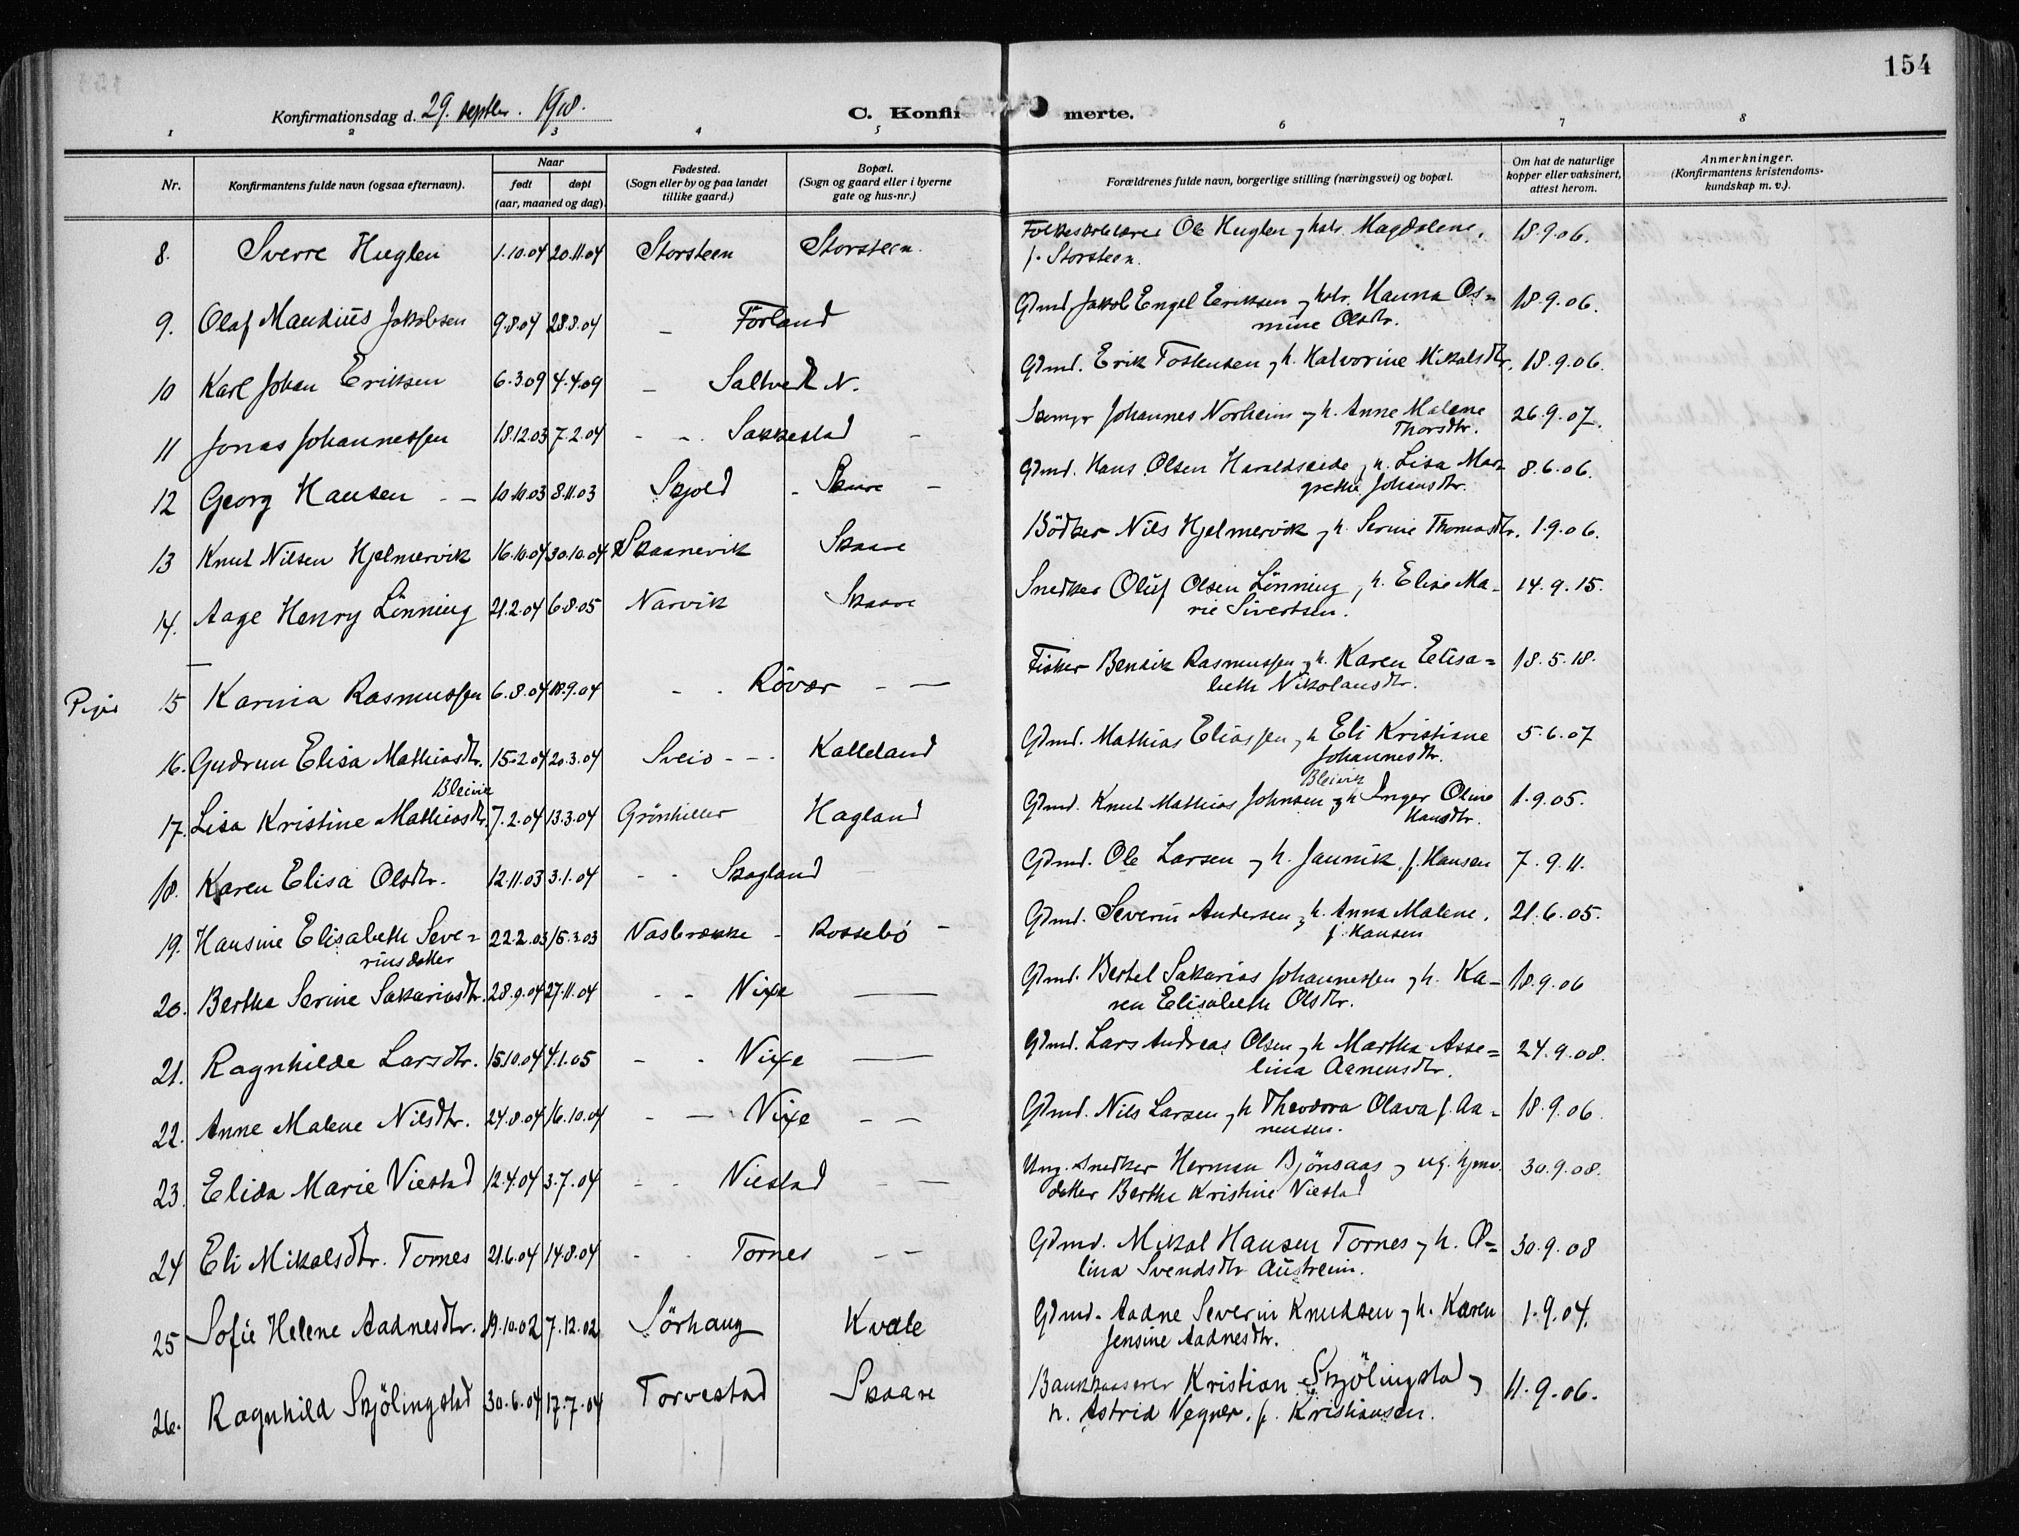 154
Konfirmationsdag d. 29. septbr. 1918.
C. Konfirmerte.
1 2 3 4 5 6 7 8
Nr. Konfirmantens fulde navn (ogsaa efternavn). Naar født døpt (aar, maaned og dag) Fødested. (Sogn eller by og paa landet tillike gaard.) Bopæl. (Sogn og gaard eller i byerne gate og hus-nr.) Forældrenes fulde navn, borgerlige stilling (næringsvei) og bopæl. Om hat de naturlige kopper eller vaksinert, attest herom. Anmerkninger. (Konfirmantens kristendoms-kundskap m. v.).
8. Sverre Huglen 1.10.04 20.11.04 Storsteen Storsteen. Ole Huglen og hstr. Magdalene, 18.9.06.
f. Storsteen.
9. Olaf Mandius Jakobsen 9.8.04 28.8.04 — Förland Gdmd Jakob Engel Eriksen og hstr. Hanna Os= 18.9.06.
mine Olsdtr.
10 Karl Johan Eriksen 6.3.09 4.4.09 — Saltved N. Gdmd. Erik Tostensen og h. Halvorine Mikalsdtr. 18.9.06.
11 Jonas Johannessen 18.12.03 7.2.04 - -. Sakkestad - Johannes Norheim og h. Anne Malene 26.9.07.
Thorsdtr.
12 Georg Hansen - - 10.10.03 8.11.03 Skjold - Skaare - Gdmd. Hans Olsen Haraldseide og h. Lisa Mar= 8.6.06.
grethe Johansdtr.
13 Knut Nilsen Hjelmervik 16.10.04 30.10.04 Skaanevik Skaare Bödker Nils Hjelmervik og h. Serine Thomasdtr. 1.9.06.
14. Aage Henry Lönning 21.2.04 6.8.05 Narvik Skaare Snedker Oluf Olsen Lönning og h. Elise Ma- 14.9.15.
rie Sivertsen.
Piger 15 Karina Rasmussen 6.8.04 18.9.04 - - Rövær - — Fisker Bendik Rasmussen og h. Karen Elisa= 18.5.18.
beth Nikolausdtr.
16. Gudrun Elisa Mathiasdtr. 15.2.04 20.3.04 Sveio - - - Kalleland Gdmd. Mathias Eliassen og h Eli Kristiane 5.6.07
Johannesdtr.
Bleivik Bleivik
17. Lisa Kristine Mathiasdtr. 7.2.04 13.3.04 Grönhiller Hagland Gdmd. Knut Mathias Johnsen og h Inger Oline 1.9.05.
Hansdtr.
18. Karen Elisa Olsdtr. 12.11.03 3.1.04 - - Skogland — Gdmd. Ole Larsen og h. Jannik f. Hansen 7.9.11.
19. Hansine Elisabeth Seve= 22.2.03 15.3.03 Vasbrække - Rossebö - Gdmd. Severin Andersen og h. Anna Malene, 21.6.05.
rinsdatter f. Hansen
20. Berthe Serine Sakariasdtr. 28.9.04 27.11.04 - - Vixe —— Gdmd. Bertel Sakarias Johannessen og h. Ka- 18.9.06
ren Elisabeth Olsdtr.
21. Ragnhilde Larsdtr. 15.10.04 4.1.05 - - Vixe —— Gdmd. Lars Andreas Olsen og h Martha Asse= 24.9.08.
lina Aanensdtr.
22. Anne Malene Nilsdtr. 24.8.04 16.10.04 - — Vixe - — Gdmd. Nils Larsen og h Theodora Olava f. Aa- 18.9.06.
nensen.
23. Elida Marie Viestad 12.4.04 3.7.04 - - Viestad - — Ung. snedker Herman Bjönsaas og ug. 30.9.08.
datter Berthe Kristine Viestad
24 Eli Mikalsdtr. Tornes 21.6.04 14.8.04 - - Tornes - - Gdmd. Mikal Hansen Tornes og h. O= 30.9.08
lina Svendsdtr Austreim.
25 Sofie Helene Aadnesdtr. 19.10.02 7.12.02 Sörhaug Kvale Gdmd. Aadne Severin Knudsen og h. Karen 1.9.04.
Jensine Aadnesdtr.
26. Ragnhild Skjölingstad 30.6.04 17.7.04 Torvestad Skaare Bankkasserer Kristian Skjölingstad og 11.9.06.
h. Astrid Vegner f. Kristiansen.